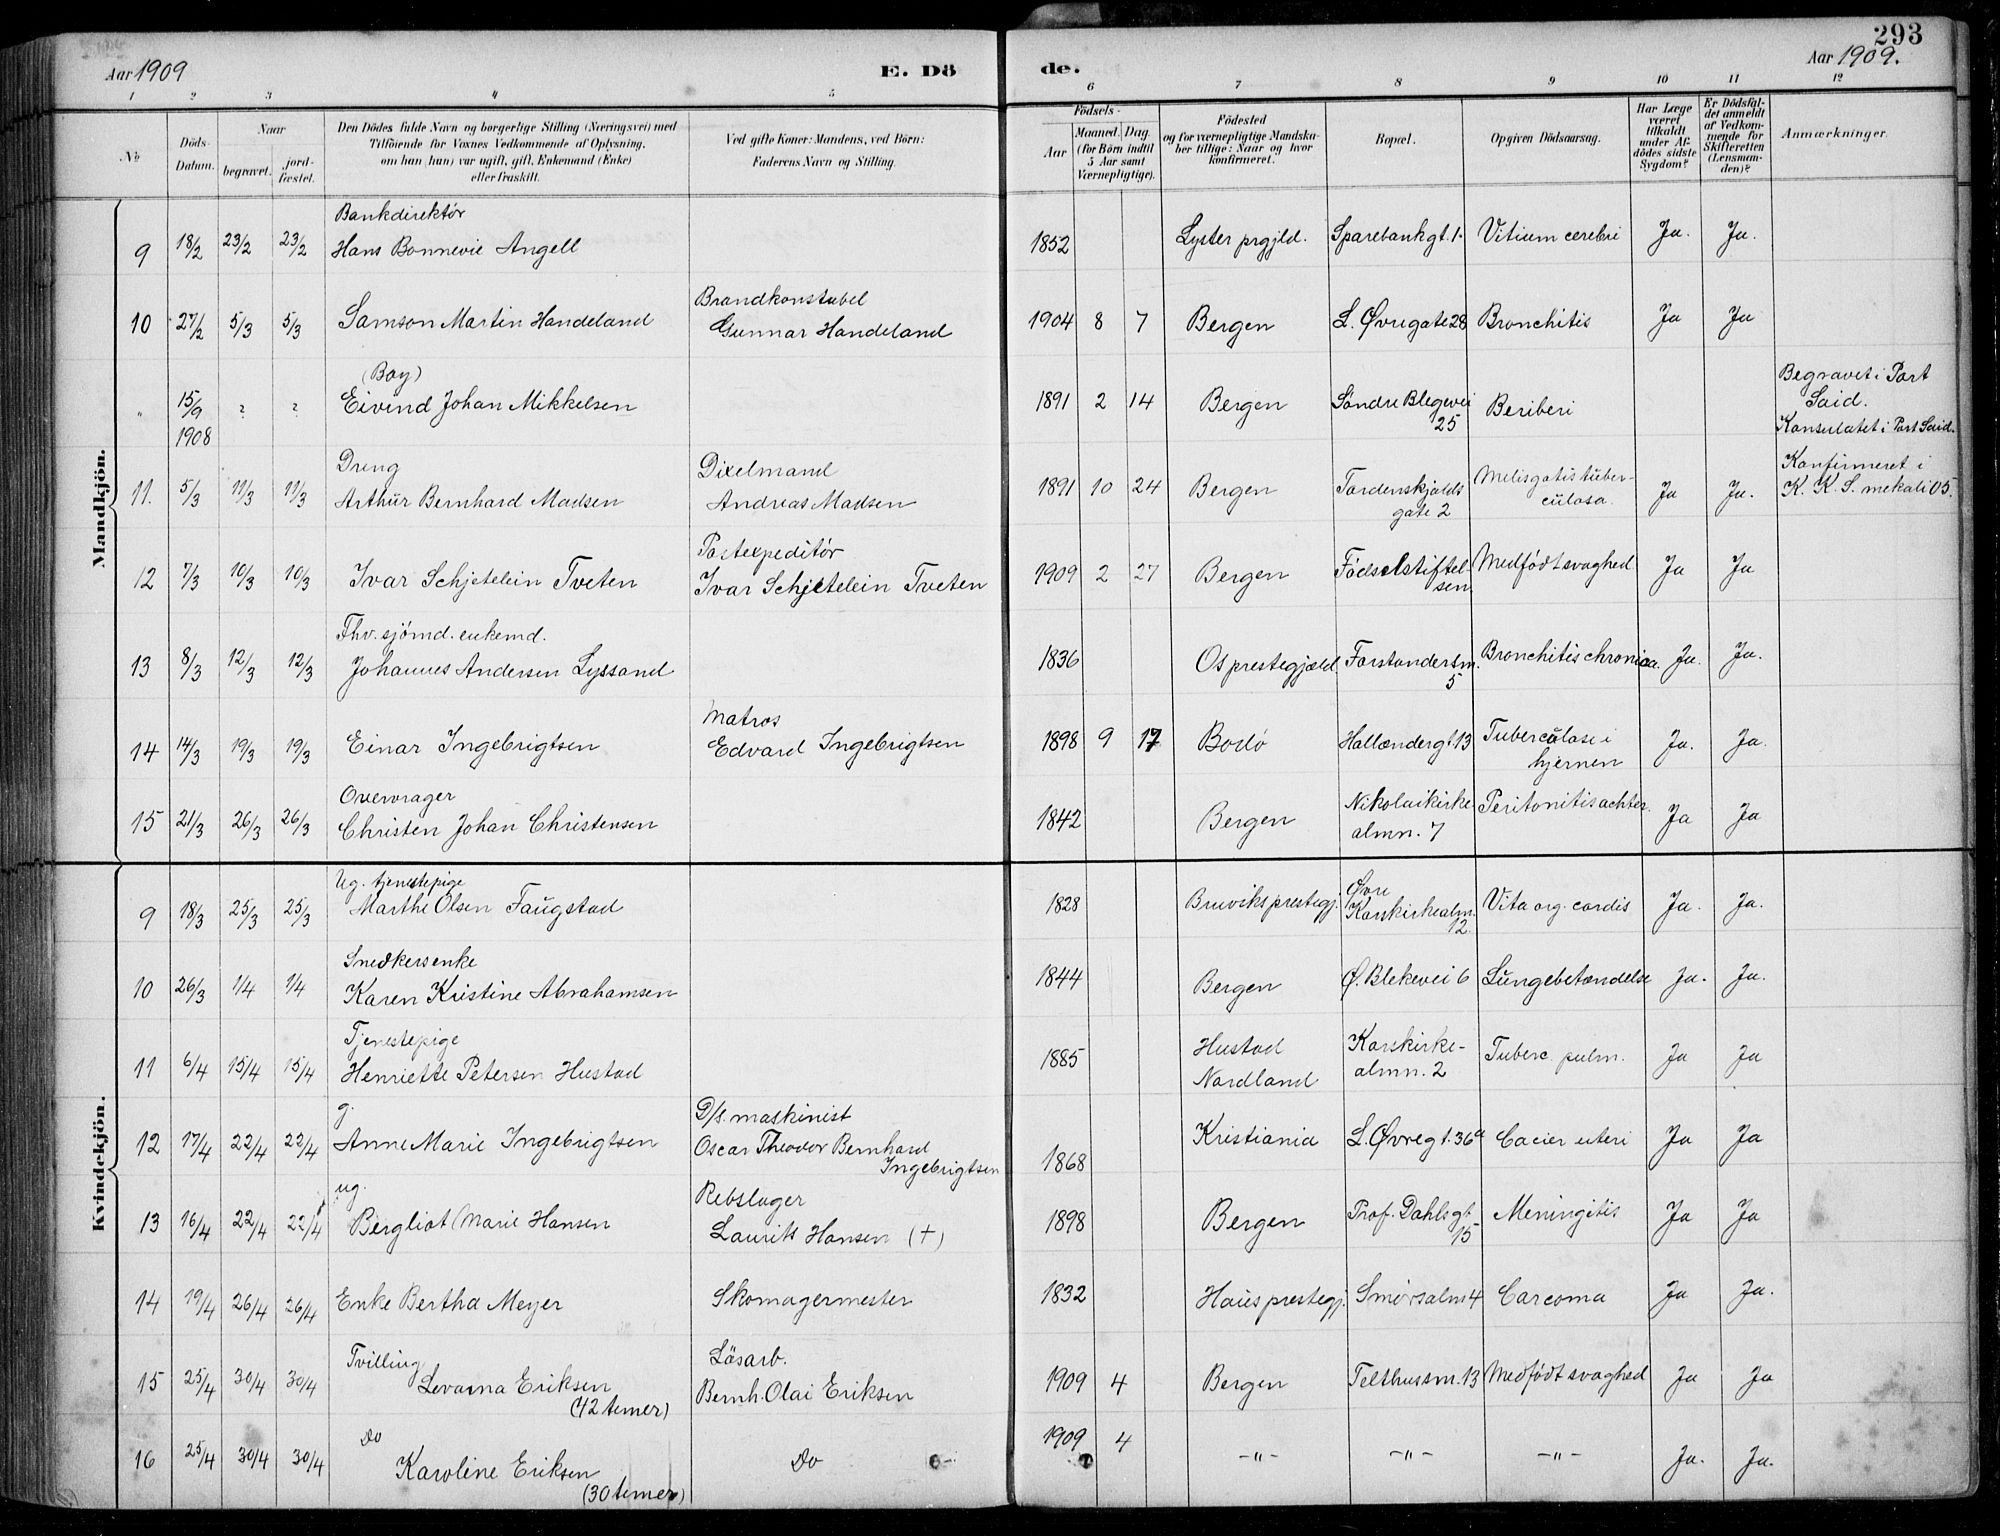 293
Aar 1909
E. Dö
de.
Aar 1909.
1 2 3 4 5 6 7 8 9 10 11 12
No
Döds-Datum.
Naar
begravet.
jord-fæstet.
Den Dödes fulde Navn og borgerlige Stilling (Næringsvei) med
Tilföiende for Voxnes Vedkommende af Oplysning,
om han (hun) var ugift, gift, Enkemand (Enke)
eller fraskilt.
Ved gifte Koner: Mandens, ved Börn:
Faderens Navn og Stilling.
Födsels-
Aar
Maaned. Dag.
(for Börn indtil
5 Aar samt
Værnepligtige).
Födested
og for værnepligtige Mandska-
ber tillige: Naar og hvor
konfirmeret.
Bopæl.
Opgiven Dödsaarsag.
Har Læge
været
tilkaldt
under Af-
dödes sidste
Sygdom?
Er Dödsfal-
det anmeldt
af Vedkom-
mende for
Skifteretten
(Lensman-
den)?
Anmærkninger.
Mandkjön.
Bankdirektør
9 18/2 23/2 23/2 Hans Bonnevie Angell 1852 Lyster prgjld. Sparebankgt. 1. Vitium cerebri Ja. Ja.
Brandkonstabel
10 27/2 5/3 5/3 Samson Martin Handeland Gunnar Handeland 1904 8 7 Bergen L. Øvregate 28 Bronchitis Ja Ja
(Boy)
" 15/9 1908 ? ? Eivind Johan Mikkelsen 1891 2 14 Bergen Söndre Blegevei 25 Beriberi
Begravet i Port
Said.
Konsulatet i Port Said.
Dreng Dixelmand
11. 5/3 11/3 11/3 Arthur Bernhard Madsen Andreas Madsen 1891 10 24 Bergen Tordenskjolds gate 2 tuberculosa. Ja Ja.
Konfirmeret i
K. K. S.
Postexpeditør
12 7/3 10/3 10/3 Ivar Schjetelein Tveten Ivar Schjetelein Tveten 1909 2 27 Bergen Födselstiftelsen Medfödt svaghed Ja Ja
Fhv. sjömd. enkemd.
13 8/3 12/3 12/3 Johannes Andersen Lyssand 1836 Os prestegjæld. Forstandersm. 5 Bronchitis chronica. Ja. Ja.
Matros
14 14/3 19/3 19/3 Einar Ingebrigtsen Edvard Ingebrigtsen 1898 9 17 Bodö Hollændergt. 13 Tuberculose i hjernen Ja. Ja.
Overvrager
15 21/3 26/3 26/3 Christen Johan Christensen 1842 Bergen Nikolaikirke almn. 7 Peritonitis Ja Ja
Kvindekjön.
Ug. tjenestepige
9 18/3 25/3 25/3 Marthe Olsen Faugstad 1828 Bruviks prestegj. Øvre Korskirkealm. 12. Vita org. cordis Ja. Ja.
Snedkersenke
10 26/3 1/4 1/4 Karen Kristine Abrahamsen 1844 Bergen Ø. Blekevei 6 Lungebetændelse Ja. Ja.
Tjenestepige
11 6/4 15/4 15/4 Henriette Petersen Hustad 1885 Hustad Nordland Korskirke-almn. 2 Tuberc pulm. Ja Ja
g. D/s. maskinist
12 17/4 22/4 22/4 Anne Marie Ingebrigtsen Oscar Theodor Bernhard Ingebrigtsen 1868 Kristiania L. Øvregt. 36a uteri Ja Ja
ug. Rebslager
13 16/4 22/4 22/4 Bergliot Marie Hansen Laurits Hansen (+) 1898 Bergen Prof. Dahlsgt. 15 Meningitis Ja Ja
14 19/4 26/4 26/4 Enke Bertha Meyer Skomagermester 1832 Haus prestegj. Smörsalm 4 Carcoma Ja Ja.
Tvilling Lösarb.
15 25/4 30/4 30/4 Eriksen (42 timer) Bernh. Olai Eriksen 1909 4 Bergen Telthussm. 13 Medfödt svaghed Ja Ja
Do
16 25/4 30/4 30/4 Karoline Eriksen (30 timer) Do 1909 4 -"- -"- -"- Ja. Ja.